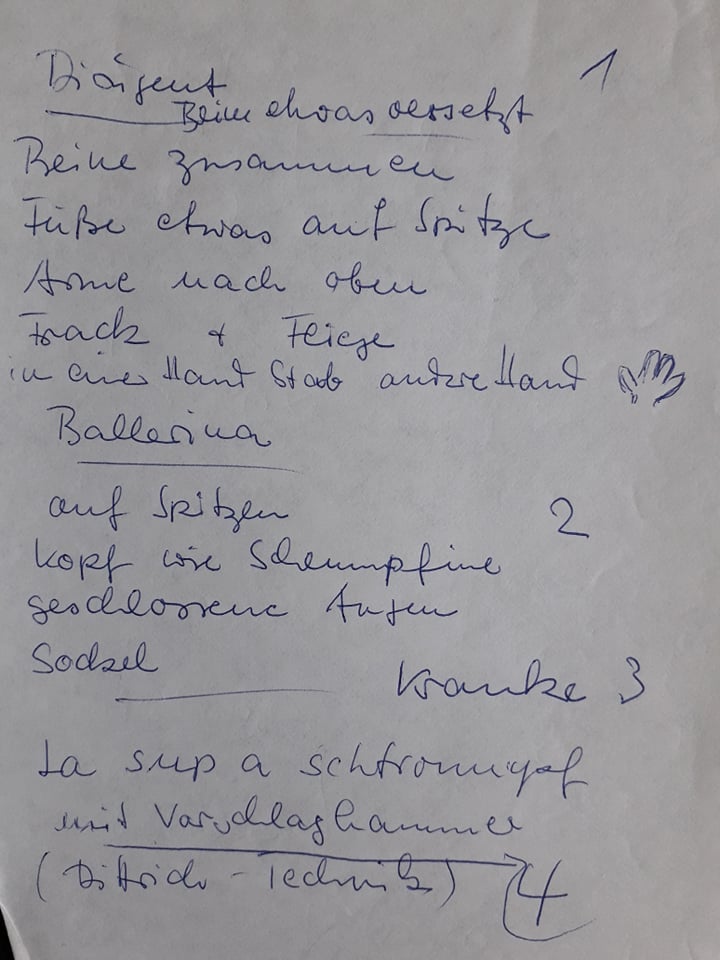 Dirigent 1
Beine etwas versetzt
Beine zusammen
Füße etwas auf Spitze
Arme nach oben
Frack + Fliege
in einer Hand Stab andere Hand
Ballerina
auf Spitzen 2
Kopf wie
geschlossene Augen
Sockel
Kranke 3
La sup a
mit Vorschlaghammer
(Dittrich-Technik) 4